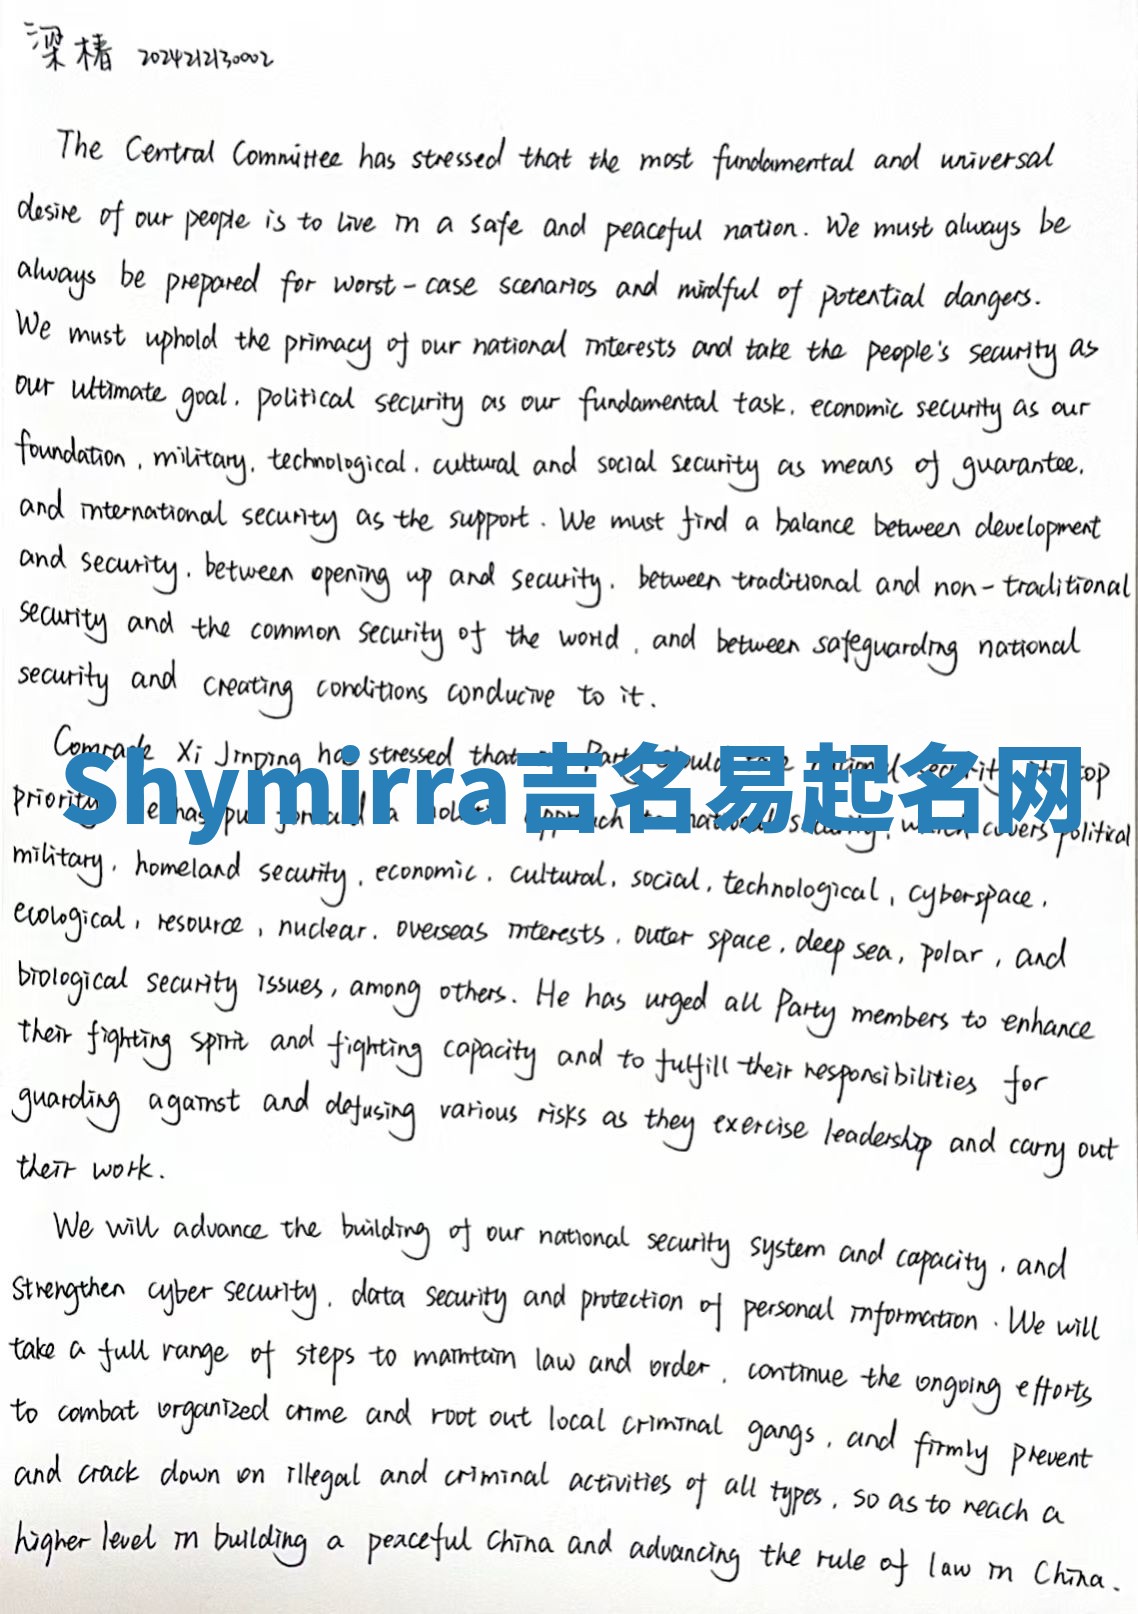 梁椿 2024212130002
The Central Committee has stressed that the most fundamental and universal
desire of our people is to live in a safe and peaceful nation. We must always be
always be prepared for worst-case scenarios and mindful of potential dangers.
We must uphold the primacy of our national interests and take the people's security as
our ultimate goal, political security as our fundamental task, economic security as our
foundation, military, technological, cultural and social security as means of guarantee,
and international security as the support. We must find a balance between development
and security, between opening up and security, between traditional and non-traditional
security and the common security of the world, and between safeguarding national
security and creating conditions conducive to it.
Comrade Xi Jinping has stressed that Party should national security top
Shymirra吉名易起名网
priority has put forward a approach to national security, which covers political
military, homeland security, economic, cultural, social, technological, cyberspace,
ecological, resource, nuclear, overseas interests, outer space, deep sea, polar, and
biological security issues, among others. He has urged all Party members to enhance
their fighting spirit and fighting capacity and to fulfill their responsibilities for
guarding against and defusing various risks as they exercise leadership and carry out
their work.
We will advance the building of our national security system and capacity, and
strengthen cyber security, data security and protection of personal information. We will
take a full range of steps to maintain law and order, continue the ongoing efforts
to combat organized crime and root out local criminal gangs, and firmly prevent
and crack down on illegal and criminal activities of all types, so as to reach a
higher level in building a peaceful China and advancing the rule of law in China.